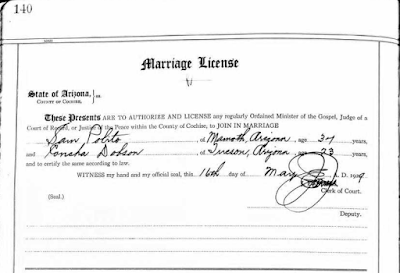 140
Marriage License
State of Arizona, } ss.
COUNTY OF COCHISE,
These Presents ARE TO AUTHORIZE AND LICENSE any regularly Ordained Minister of the Gospel, Judge of a
Court of Record, or Justice of the Peace within the County of Cochise, to JOIN IN MARRIAGE
Sam Polito, of Mamoth, Arizona, age 37 years,
and Concha Dobson of Tucson, Arizona, age 23 years,
and to certify the same according to law.
WITNESS my hand and my official seal, this 16th day of May A. D. 1919
(Seal.)
Clerk of Court.
Deputy.